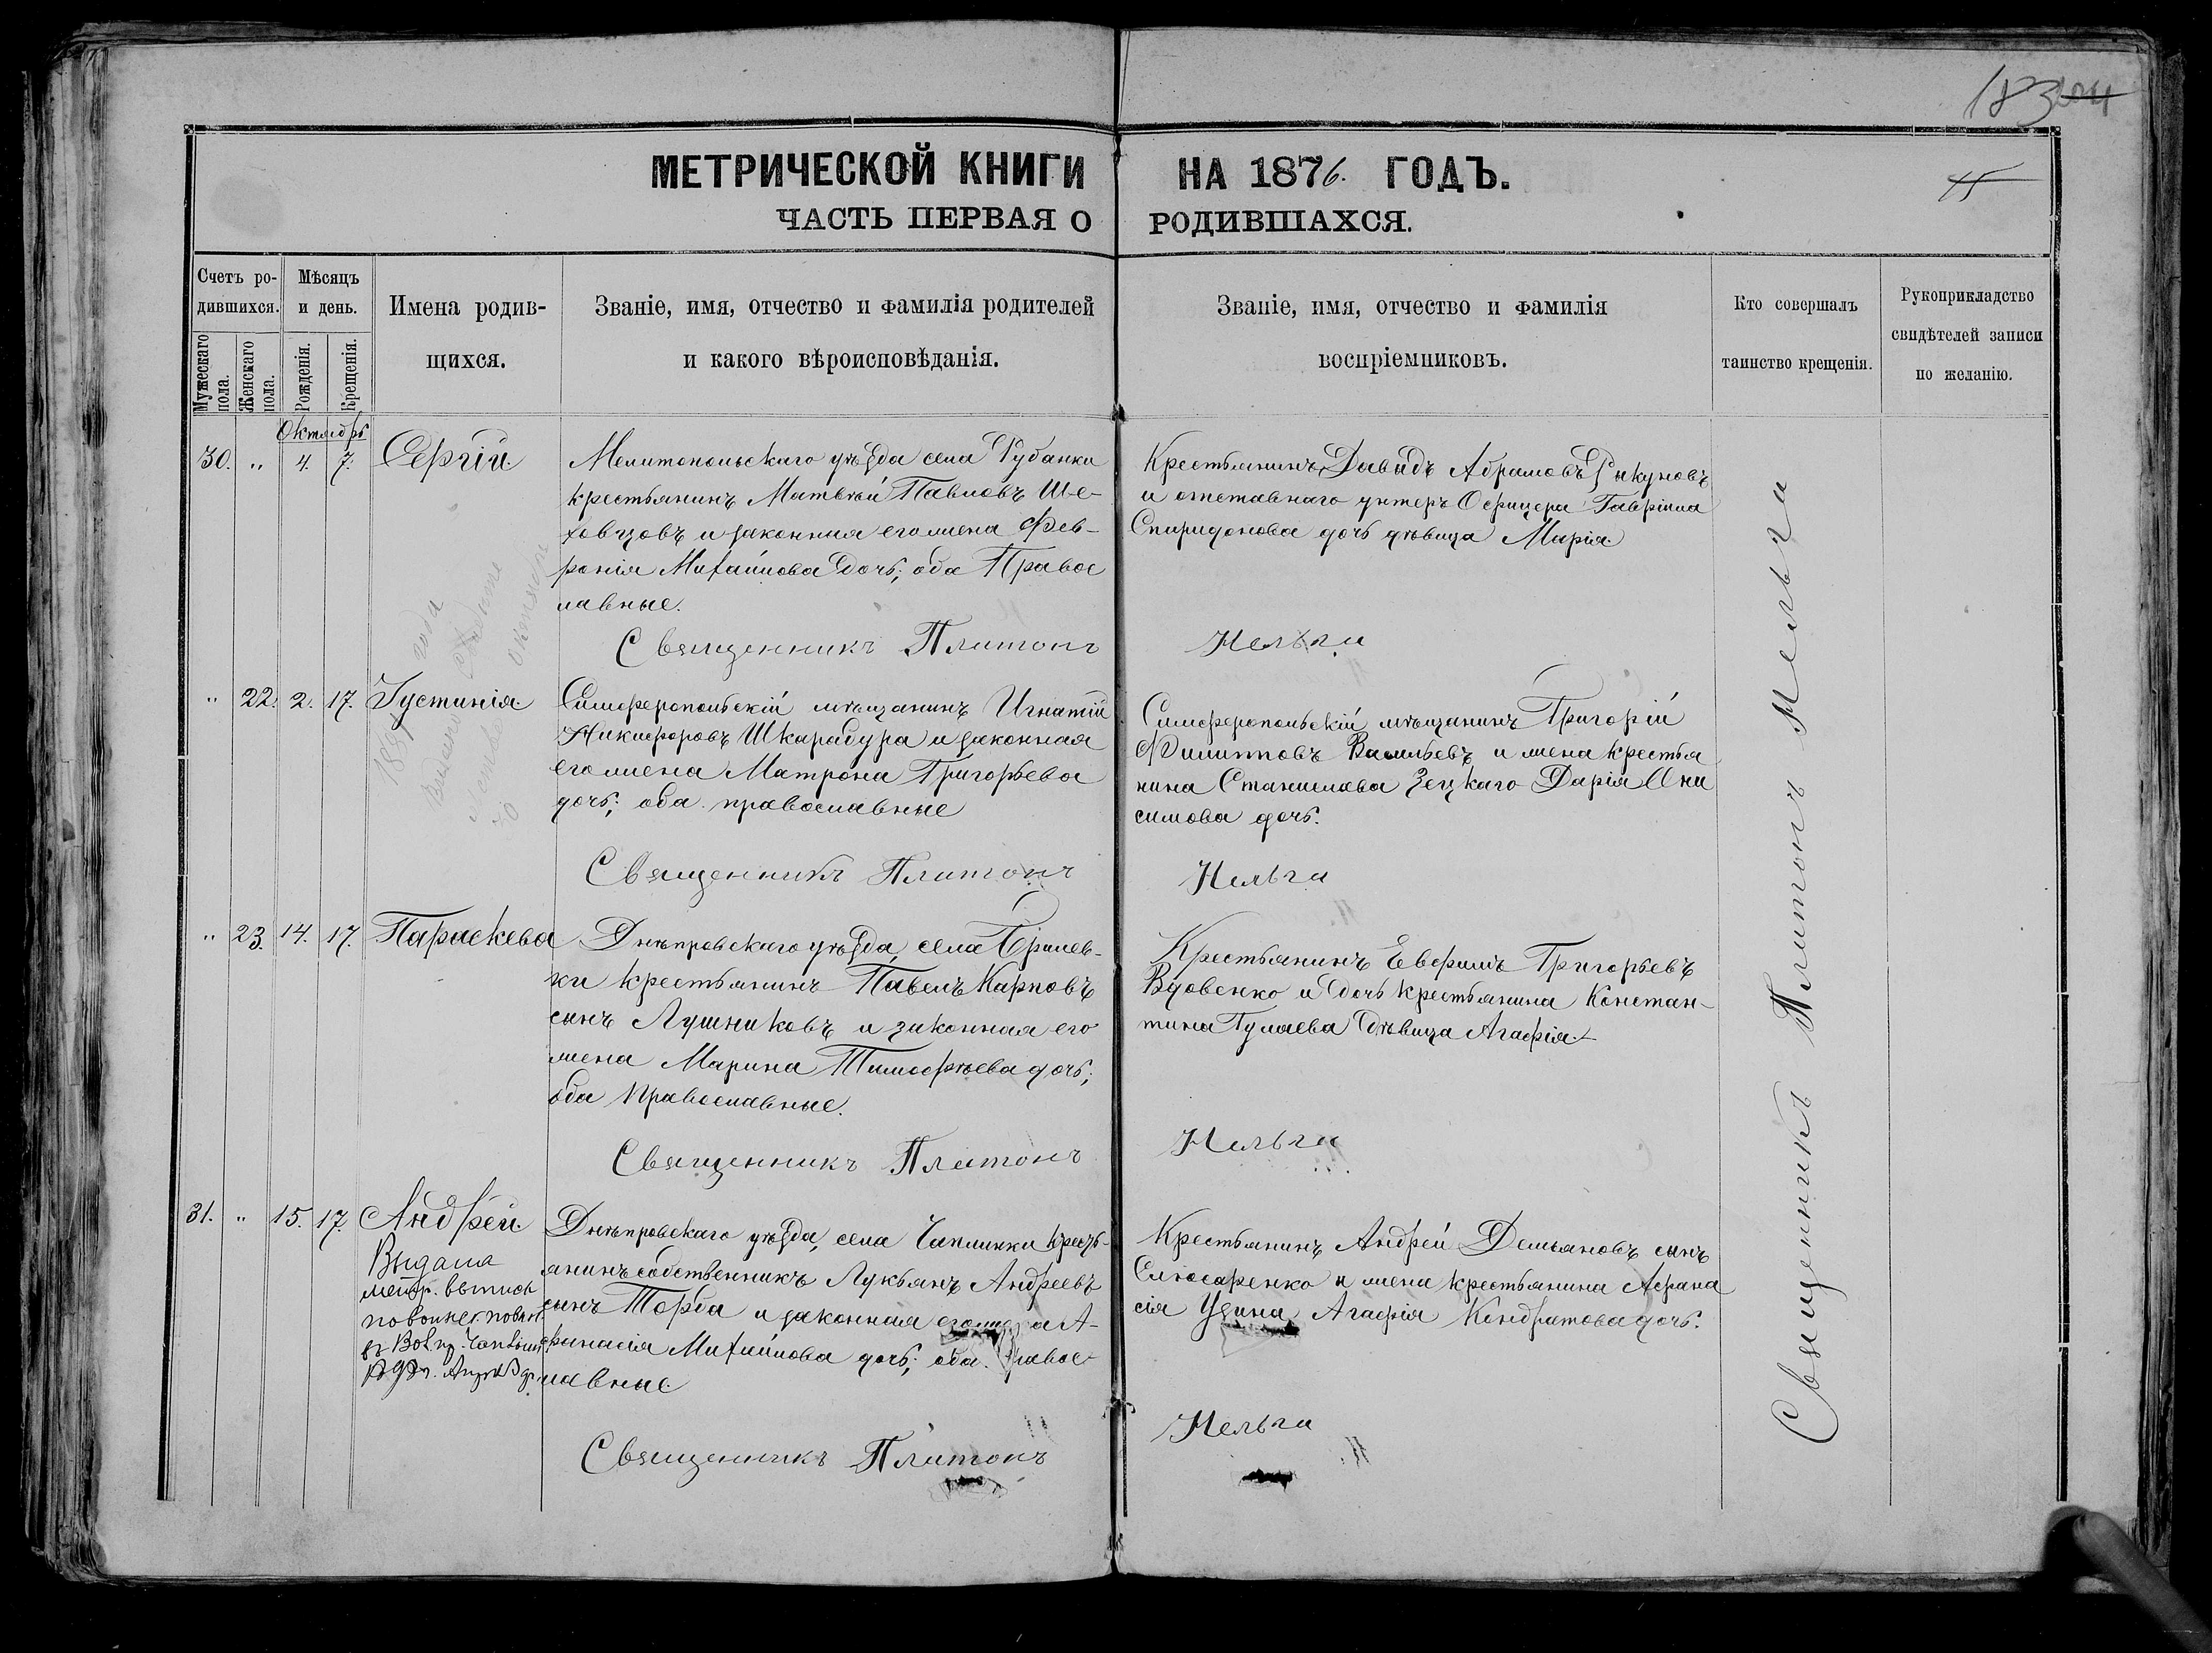 183
МЕТРИЧЕСКОЙ КНИГИ НА 1876. ГОДЪ.
ЧАСТЬ ПЕРВАЯ О РОДИВШАХСЯ.
Счетъ ро-
дившихся.
Мужескаго пола.
Женскаго пола.
Мѣсяцъ
и день.
Рожденія.
Крещенія.
Имена родив-
щихся.
Званіе, имя, отчество и фамилія родителей
и какого вѣроисповѣданія.
Званіе, имя, отчество и фамилія
воспріемниковъ.
Кто совершалъ
таинство крещенія.
Рукоприкладство
свидѣтелей записи
по желанію.
Октябрь
30. " 4. 7. Сергій.
Мелитопольскаго уѣзда села Рубанки
крестьянинъ Матвѣй Павловъ Ше-
ховцовъ и законная его жена Фев-
ронія Михайлова дочь; оба Правос
лавные.
Священникъ Платонъ
Крестьянинъ Давидъ Абрамовъ
и отставнаго унтеръ Офицера Гавріила
Спиридонова дочь дѣвица Марія.
Мельги
" 22. 2. 17. Іустинія.
Симферопольскій мѣщанинъ Игнатій
Никифоровъ Шкарабура и законная
его жена Матрона Григорьева
дочь; оба православные
Священникъ Платонъ
Симферопольскій мѣщанинъ Григорій
Филипповъ Васильевъ и жена крестья
нина Станислава Дарія Они
симова дочь.
Мельги
" 23. 14. 17. Параскева
Днѣпровскаго уѣзда, села Брилев-
ки крестьянинъ Павелъ Карповъ
сынъ Лушниковъ и законная его
жена Марина Тимофѣева дочь;
оба Православные.
Священникъ Платонъ
Крестьянинъ Евфимъ Григорьевъ
Вдовенко и дочь крестьянина Констан-
тина Гуляева дѣвица Агафія.
Мельги
31. " 15. 17. Андрей.
Выдана
метр. выпись
по воинск. повин.
Днѣпровскаго уѣзда, села Чаплинки кресть-
янинъ собственникъ Лукьянъ Андреевъ
сынъ Торба и законная его жена А-
фанасія Михайлова дочь; оба Правос-
лавные.
Священникъ Платонъ
Крестьянинъ Андрей Демьяновъ сынъ
Слюсаренко и жена крестьянина Афана
сія Агафія Кондратова дочь.
Мельги
Священникъ Платонъ Мельги